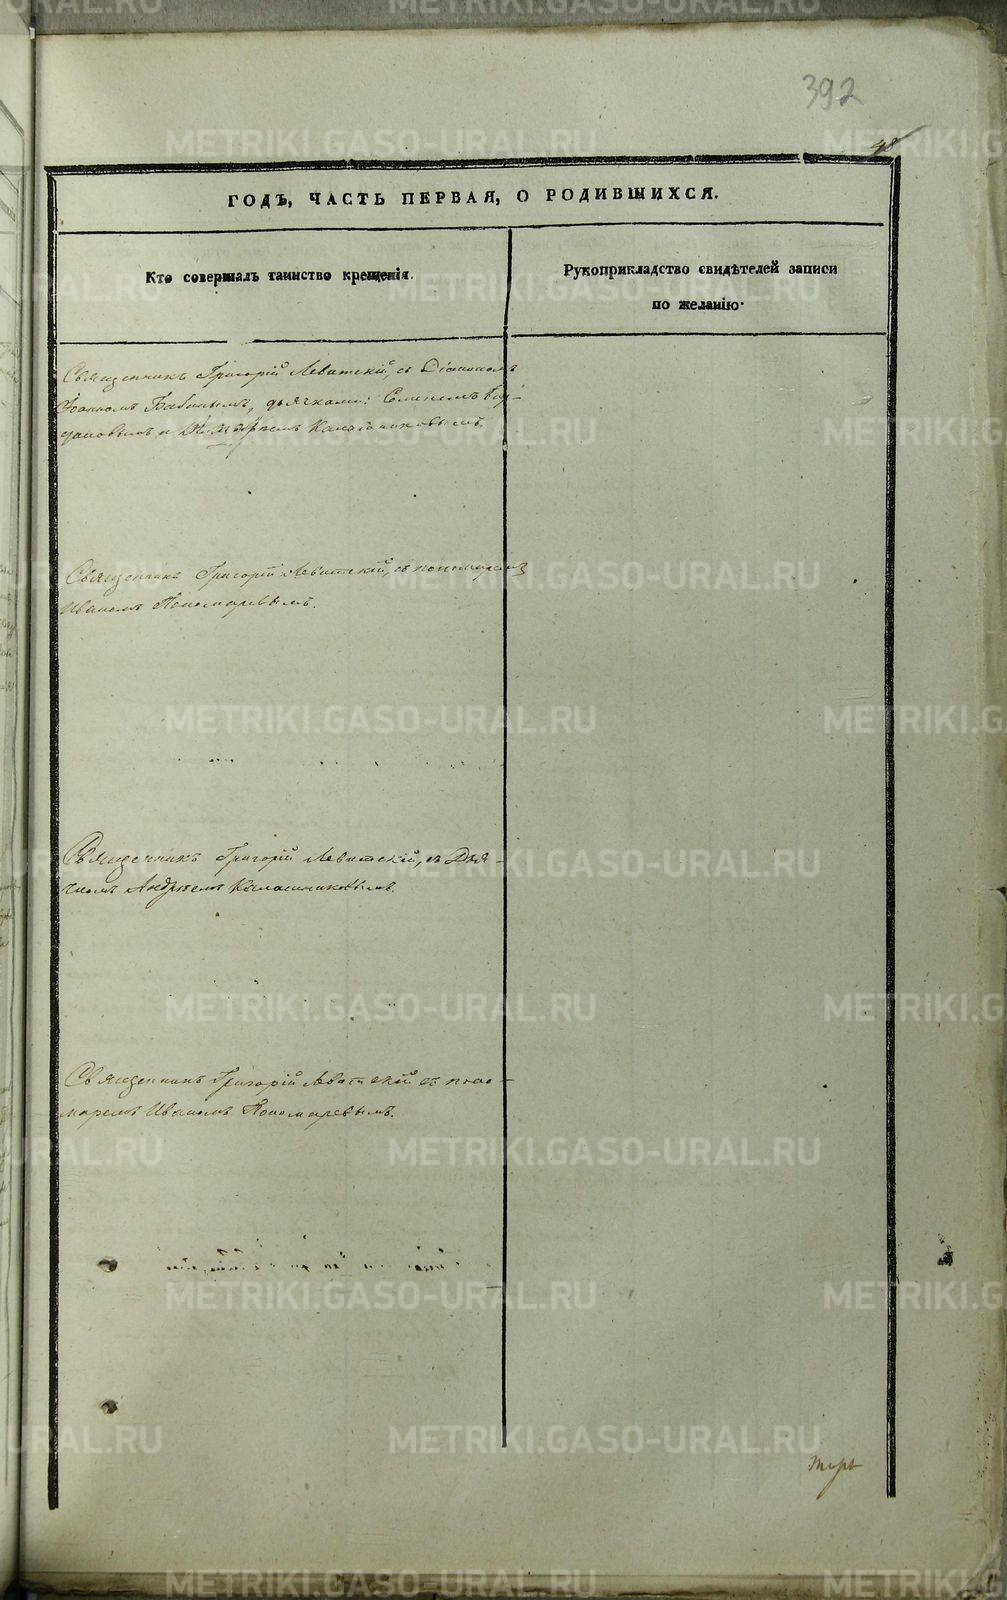 392
48
ГОДЪ, ЧАСТЬ ПЕРВАЯ, О РОДИВШИХСЯ.
Кто совершалъ таинство крещенія.
Рукоприкладство свидѣтелей записи
по желанію.
Священникъ Григорій Левитскій, съ Діакономъ
Іоанномъ Бабинымъ, дьячками: Семеномъ Бог-
дановымъ и Калашниковымъ.
Священникъ Григорій Левитскій, съ пономаремъ
Иваномъ Пономаревымъ.
Священникъ Григорій Левитскій, съ Дья-
чкомъ Андреемъ Калашниковымъ.
Священникъ Григорій Левитскій съ поно-
маремъ Иваномъ Пономаревымъ.
METRIKI.GASO-URAL.RU